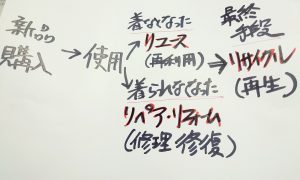 新品
購入
→ 使用
着なくなった
リユース
(再利用)
着られなくなった
リペア・リフォーム
(修理 修復)
最終
手段
→ リサイクル
(再生)